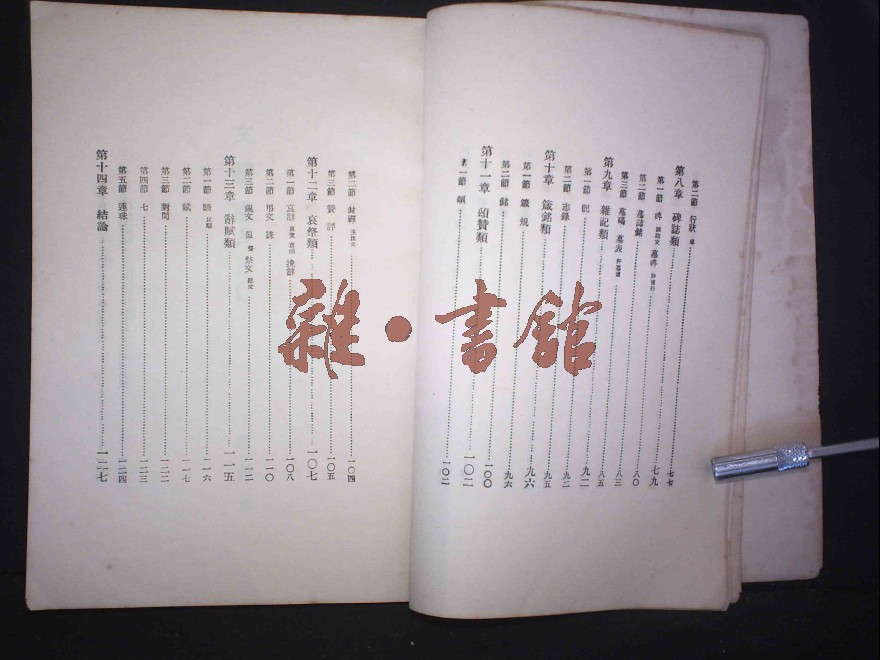 第二節 行狀 七七
第八章 碑誌類 七九
第一節 碑 墓碑
第二節 墓誌銘 八〇
第三節 墓碣 墓表 八三
第九章 雜記類 八五
第一節 記 九二
第二節 志錄 九二
第十章 箴銘類 九五
第一節 箴 規 九六
第二節 銘 九六
第十一章 頌贊類 一〇〇
第一節 頌 一〇二
第二節 一〇四
第三節 贊 評 一〇五
第十二章 哀祭類 一〇七
第一節 哀辭 一〇八
第二節 弔文 誄 一一〇
第三節 祝文 祭文 一一二
第十三章 辭賦類 一一五
第一節 一一六
第二節 賦 一一七
第三節 對問 一二二
第四節 七 一二三
第五節 連珠 一二四
第十四章 結論 一二七
雜·書館